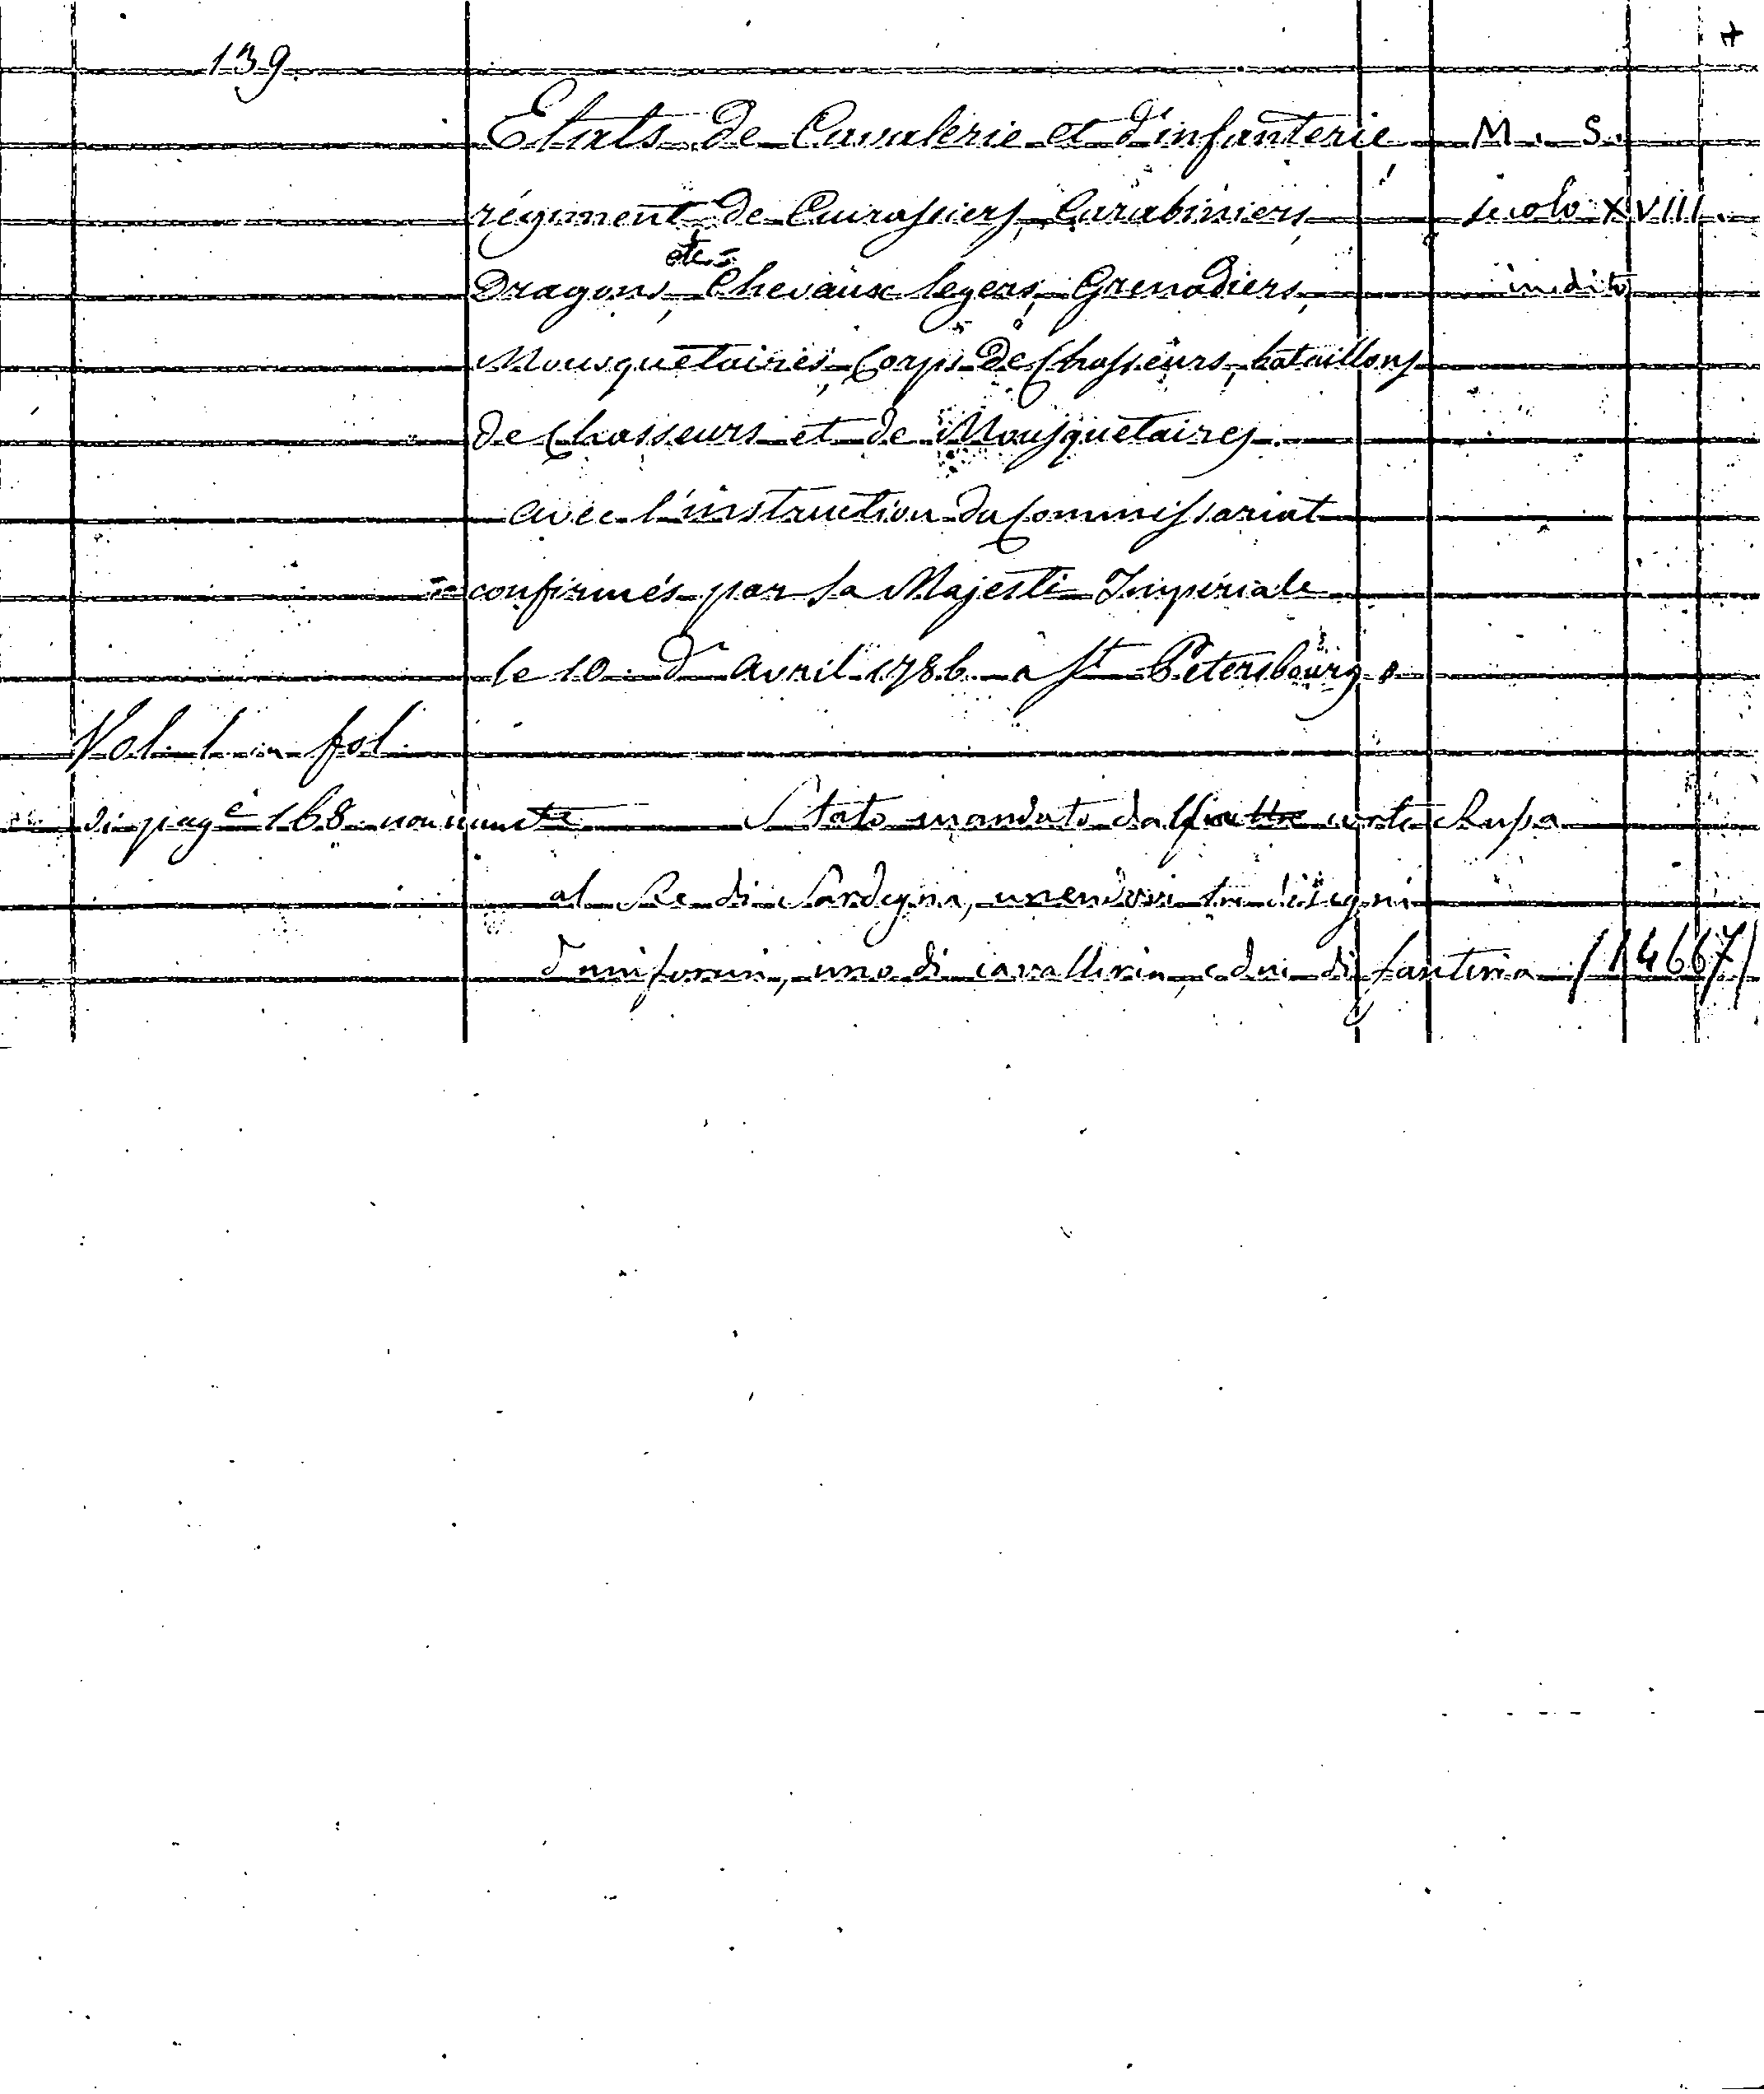 139.
Etats de Cavalerie et d'infanterie M. S.
régiment de Cuirassiers, Carabiniers, secolo XVIII.
etc
Dragons, Chevaux legers, Grenadiers, inedito
Mousquetaires, Corps de Chasseurs, bataillons
de Chasseurs et de Mousquetaires.
avec l'instruction du Commissariat
confirmés par Sa Majesté Impériale
le 10 d'avril 1786 a St Petersbourg
Vol. 1. in fol.
di page 168 non numte Stato mandato dall' corte Russa
al Re di Sardegna, unendovi tre disegni
d'uniformi, uno di cavalleria, e due di fanteria /14667/